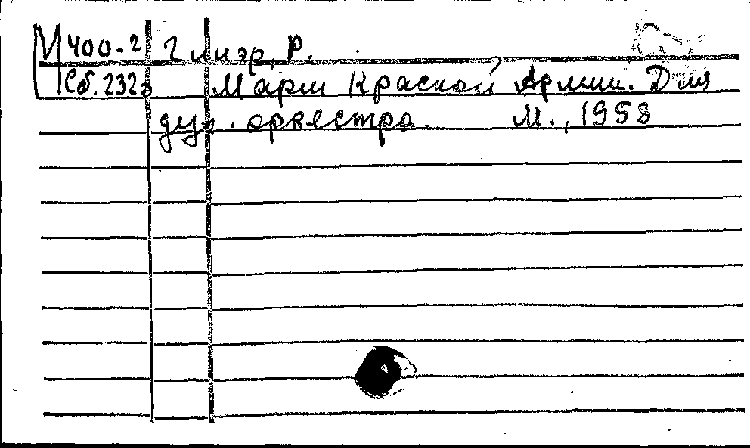 М 400-2 Глиэр, Р.
Сб. 232з Марш Красной Армии. Для
дух. оркестра. М., 1958